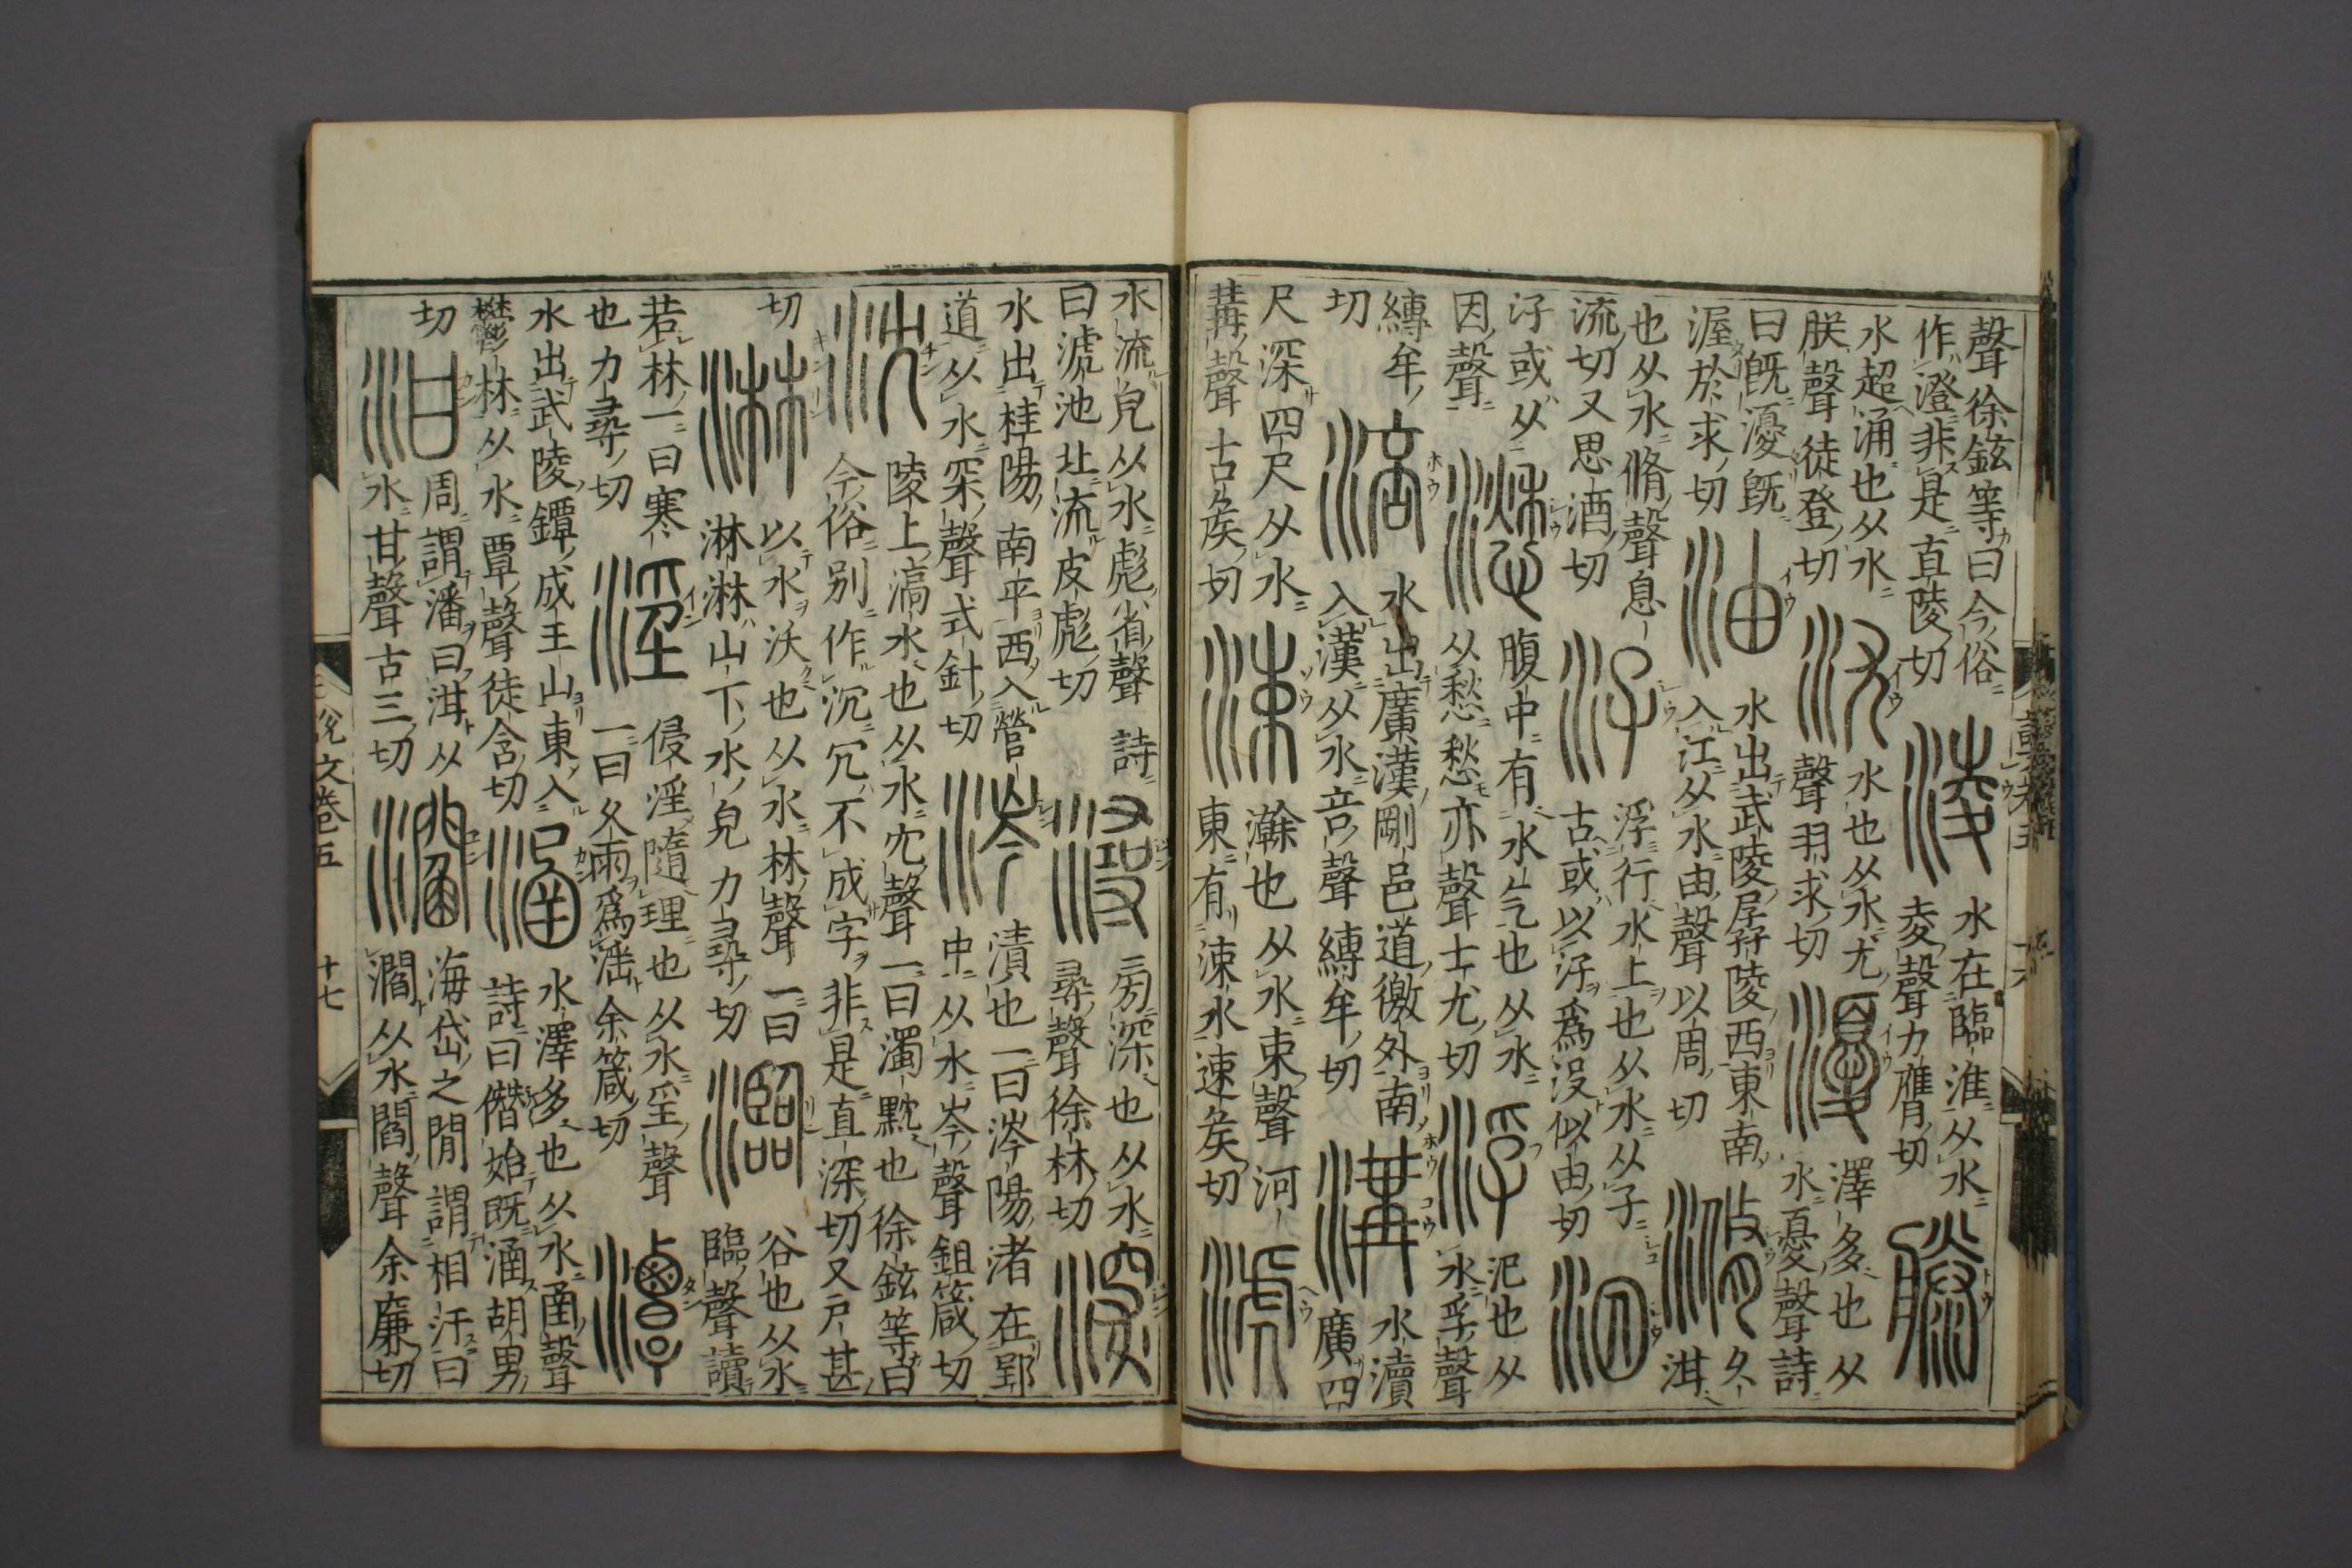 聲 徐鉉等曰今俗
作澄非是直陵切
淩
水在臨淮从水
夌聲力膺切
滕
水超涌也从水
朕聲徒登切
沋
水也从水尤
聲羽求切
瀀
澤多也从
水憂聲詩
曰旣瀀旣
渥於求切
油
水出武陵孱陵西東南
入江从水由聲以周切
滫
久
泔
也从水脩聲息
流切又思酒切
汓
浮行水上也从水从子
古或以汓爲沒似由切
泅
汓或从
因聲
腹中有水气也从水
从愁愁亦聲士尤切
浮
氾也从
水孚聲
縛牟
切
涪
水出廣漢剛邑道徼外南
入漢从水咅聲縛牟切
溝
水瀆
廣四
尺深四尺从水
冓聲古矦切
涑
瀚也从水束聲河
東有涑水速矦切
淲
水流皃从水彪省聲 詩
曰淲池北流皮彪切
潯
旁深也从水
尋聲徐林切
深
水出桂陽南平西入營
道从水罙聲式針切
涔
漬也一曰涔陽渚在郢
中从水岑聲鉏箴切
沈
陵上滈水也从水冘聲一曰濁黕也 徐鉉等曰
今俗別作沉冗不成字非是直深切又尸甚
切
淋
以水沃也从水林聲一曰
淋淋山下水皃力尋切
瀶
谷也从水
臨聲讀
若林一曰寒
也力尋切
淫
侵淫隨理也从水㸒聲
一曰久雨爲淫余箴切
潭
水出武陵鐔成玉山東入
鬱林从水覃聲徒含切
涵
水澤多也从水圅聲
詩曰僭始旣涵胡男
切
泔
周謂潘曰泔从
水甘聲古三切
海岱之閒謂相汙曰
濶从水閻聲余廉切
說文卷五
十七